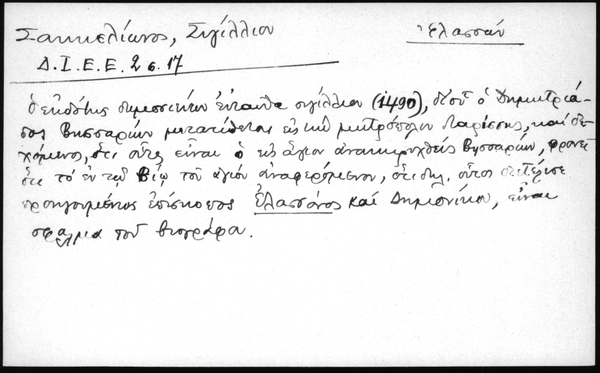 Σακκελίωνος, Σιγίλλιον
Ἐλασσών
Δ.Ι.Ε.Ε. 2 σ. 17
Ὁ ἐκδότης δημοσιεύων ἐνταῦθα σιγίλλιον (1490), δι' οὗ ὁ Δημητριά-
δος Βησσαρίων μετατίθεται εἰς τὴν μητρόπολιν Λαρίσσης, καὶ δε-
χόμενος, ὅτι οὗτος εἶναι ὁ εἰς ἅγιον ἀνακηρυχθεὶς Βησσαρίων, φρονεῖ
ὅτι τὸ ἐν τῷ Βίῳ τοῦ ἁγίου ἀναφερόμενον, ὅτι δηλ. οὗτος διετέλεσε
προηγουμένως ἐπίσκοπος Ἐλασσῶνος καὶ Δημονίκου, εἶναι
σφάλμα τοῦ βιογράφου.